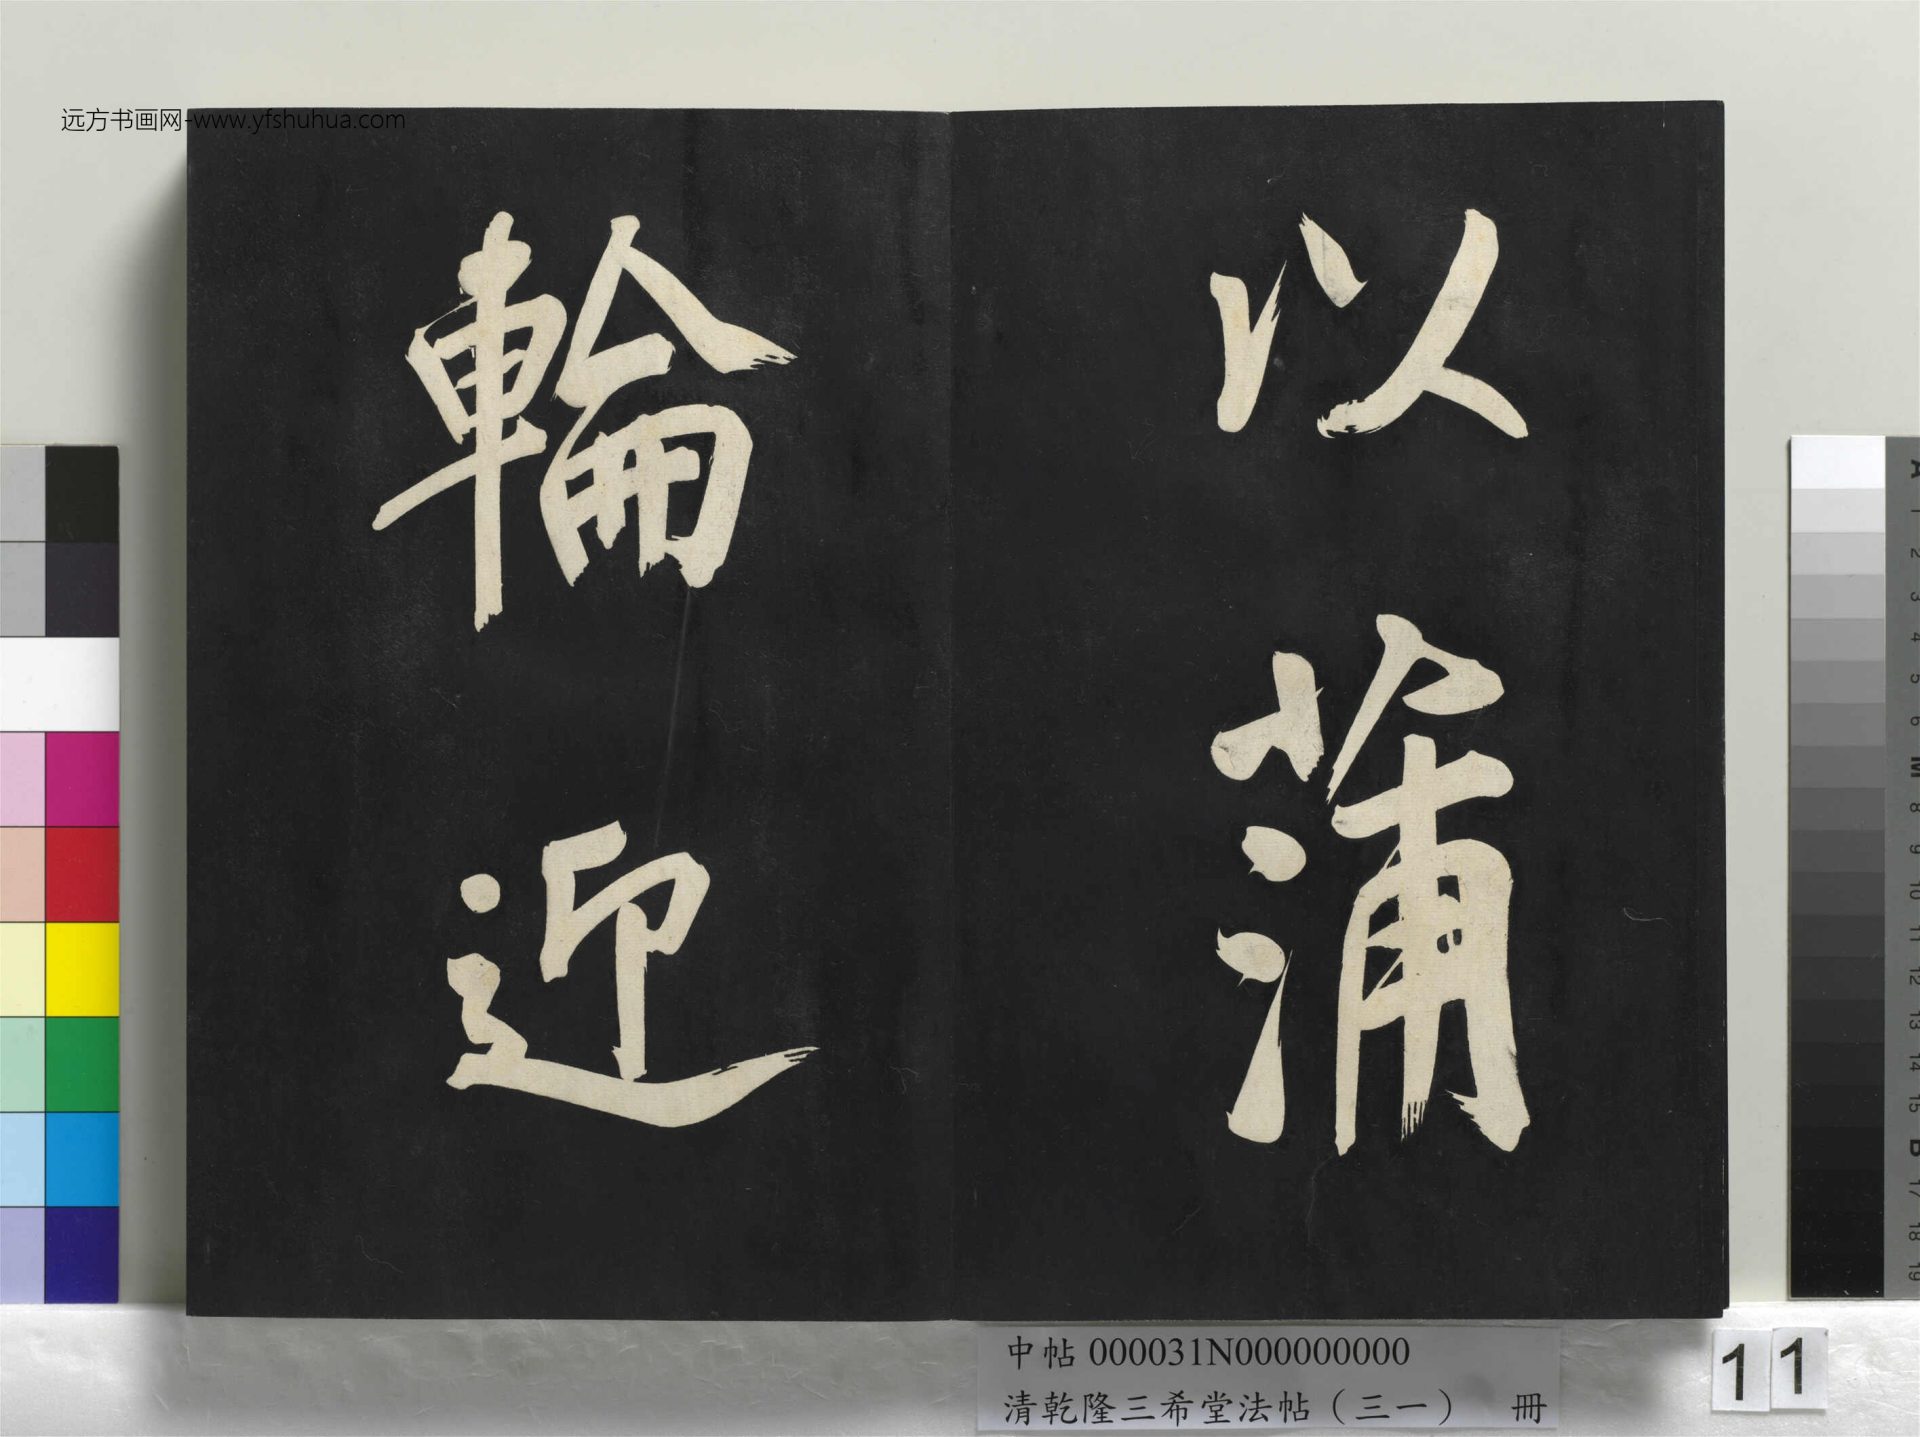 远方书画网-www.yfshuhua.com
以蒲
輪迎
中帖 000031N000000000
清乾隆三希堂法帖（三一） 冊
11
A
1
2
3
4
5
6
M
8
9
10
11
12
13
14
15
B
17
18
19